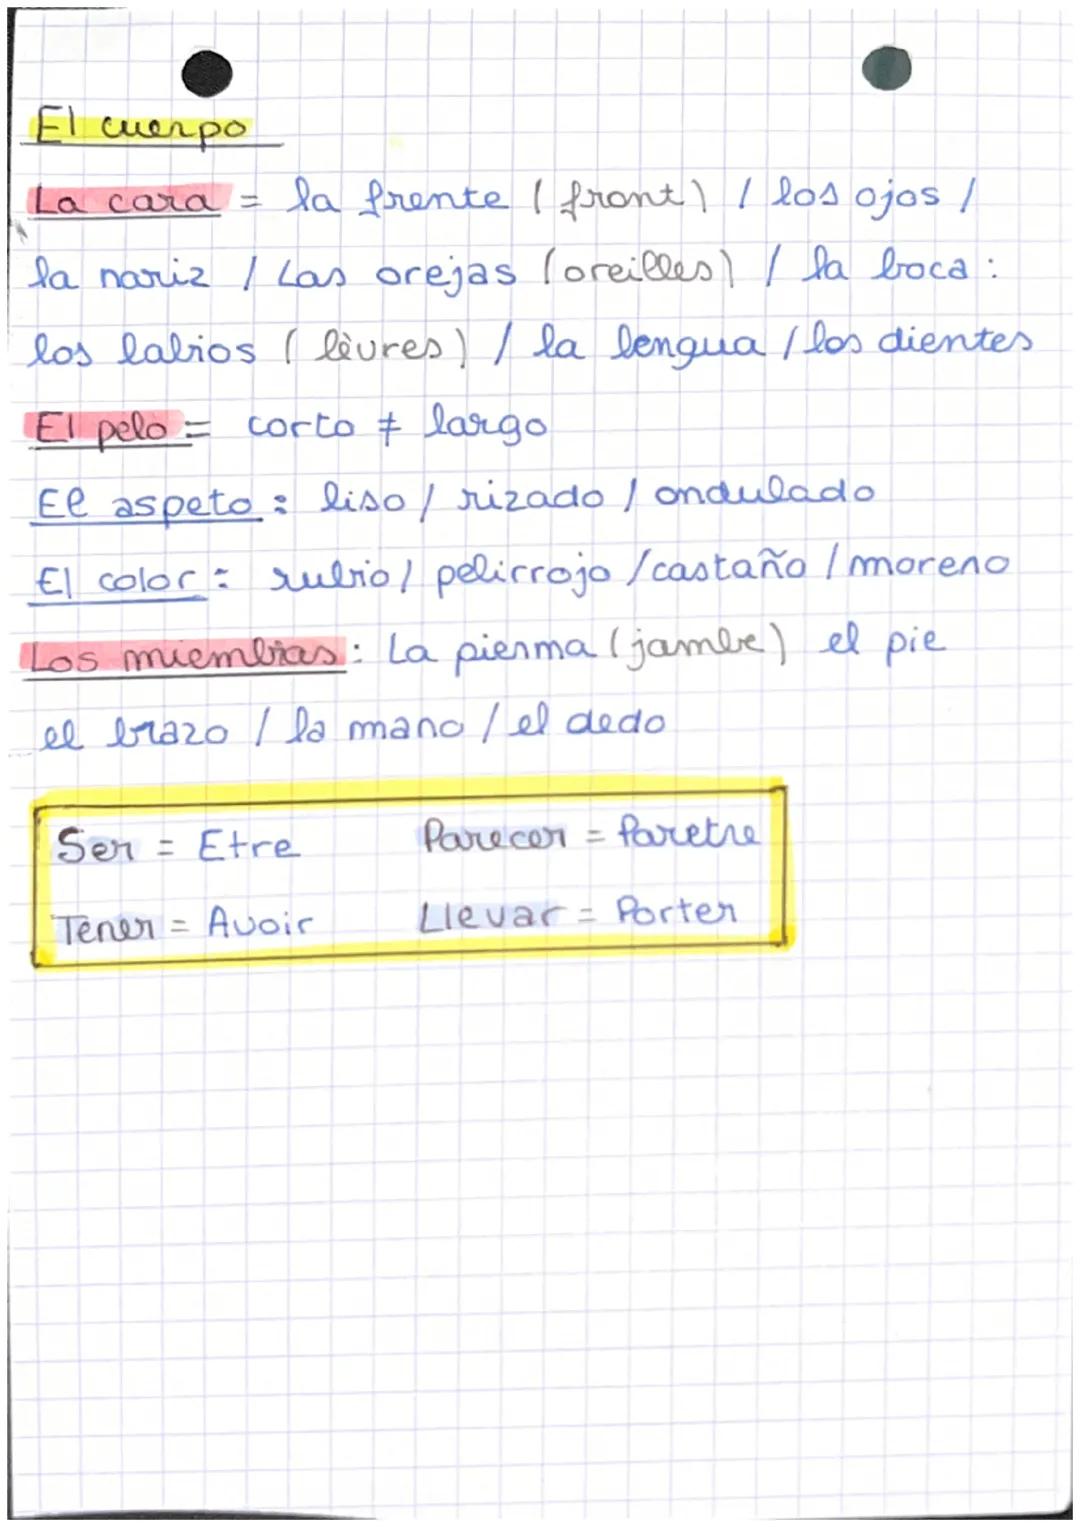 El cuerpo
La cara = la frente (front) / los ojos /
la nariz / Las orejas (oreilles) / la boca :
los labios (lèvres) / la lengua / los dientes
El pelo = corto ≠ largo
El aspeto : liso / rizado / ondulado
El color : rubio / pelirrojo / castaño / moreno
Los miembras : La pierma (jambe) el pie
el brazo / la mano / el dedo
Ser = Etre Parecer = Paretre
Tener = Avoir Llevar = Porter